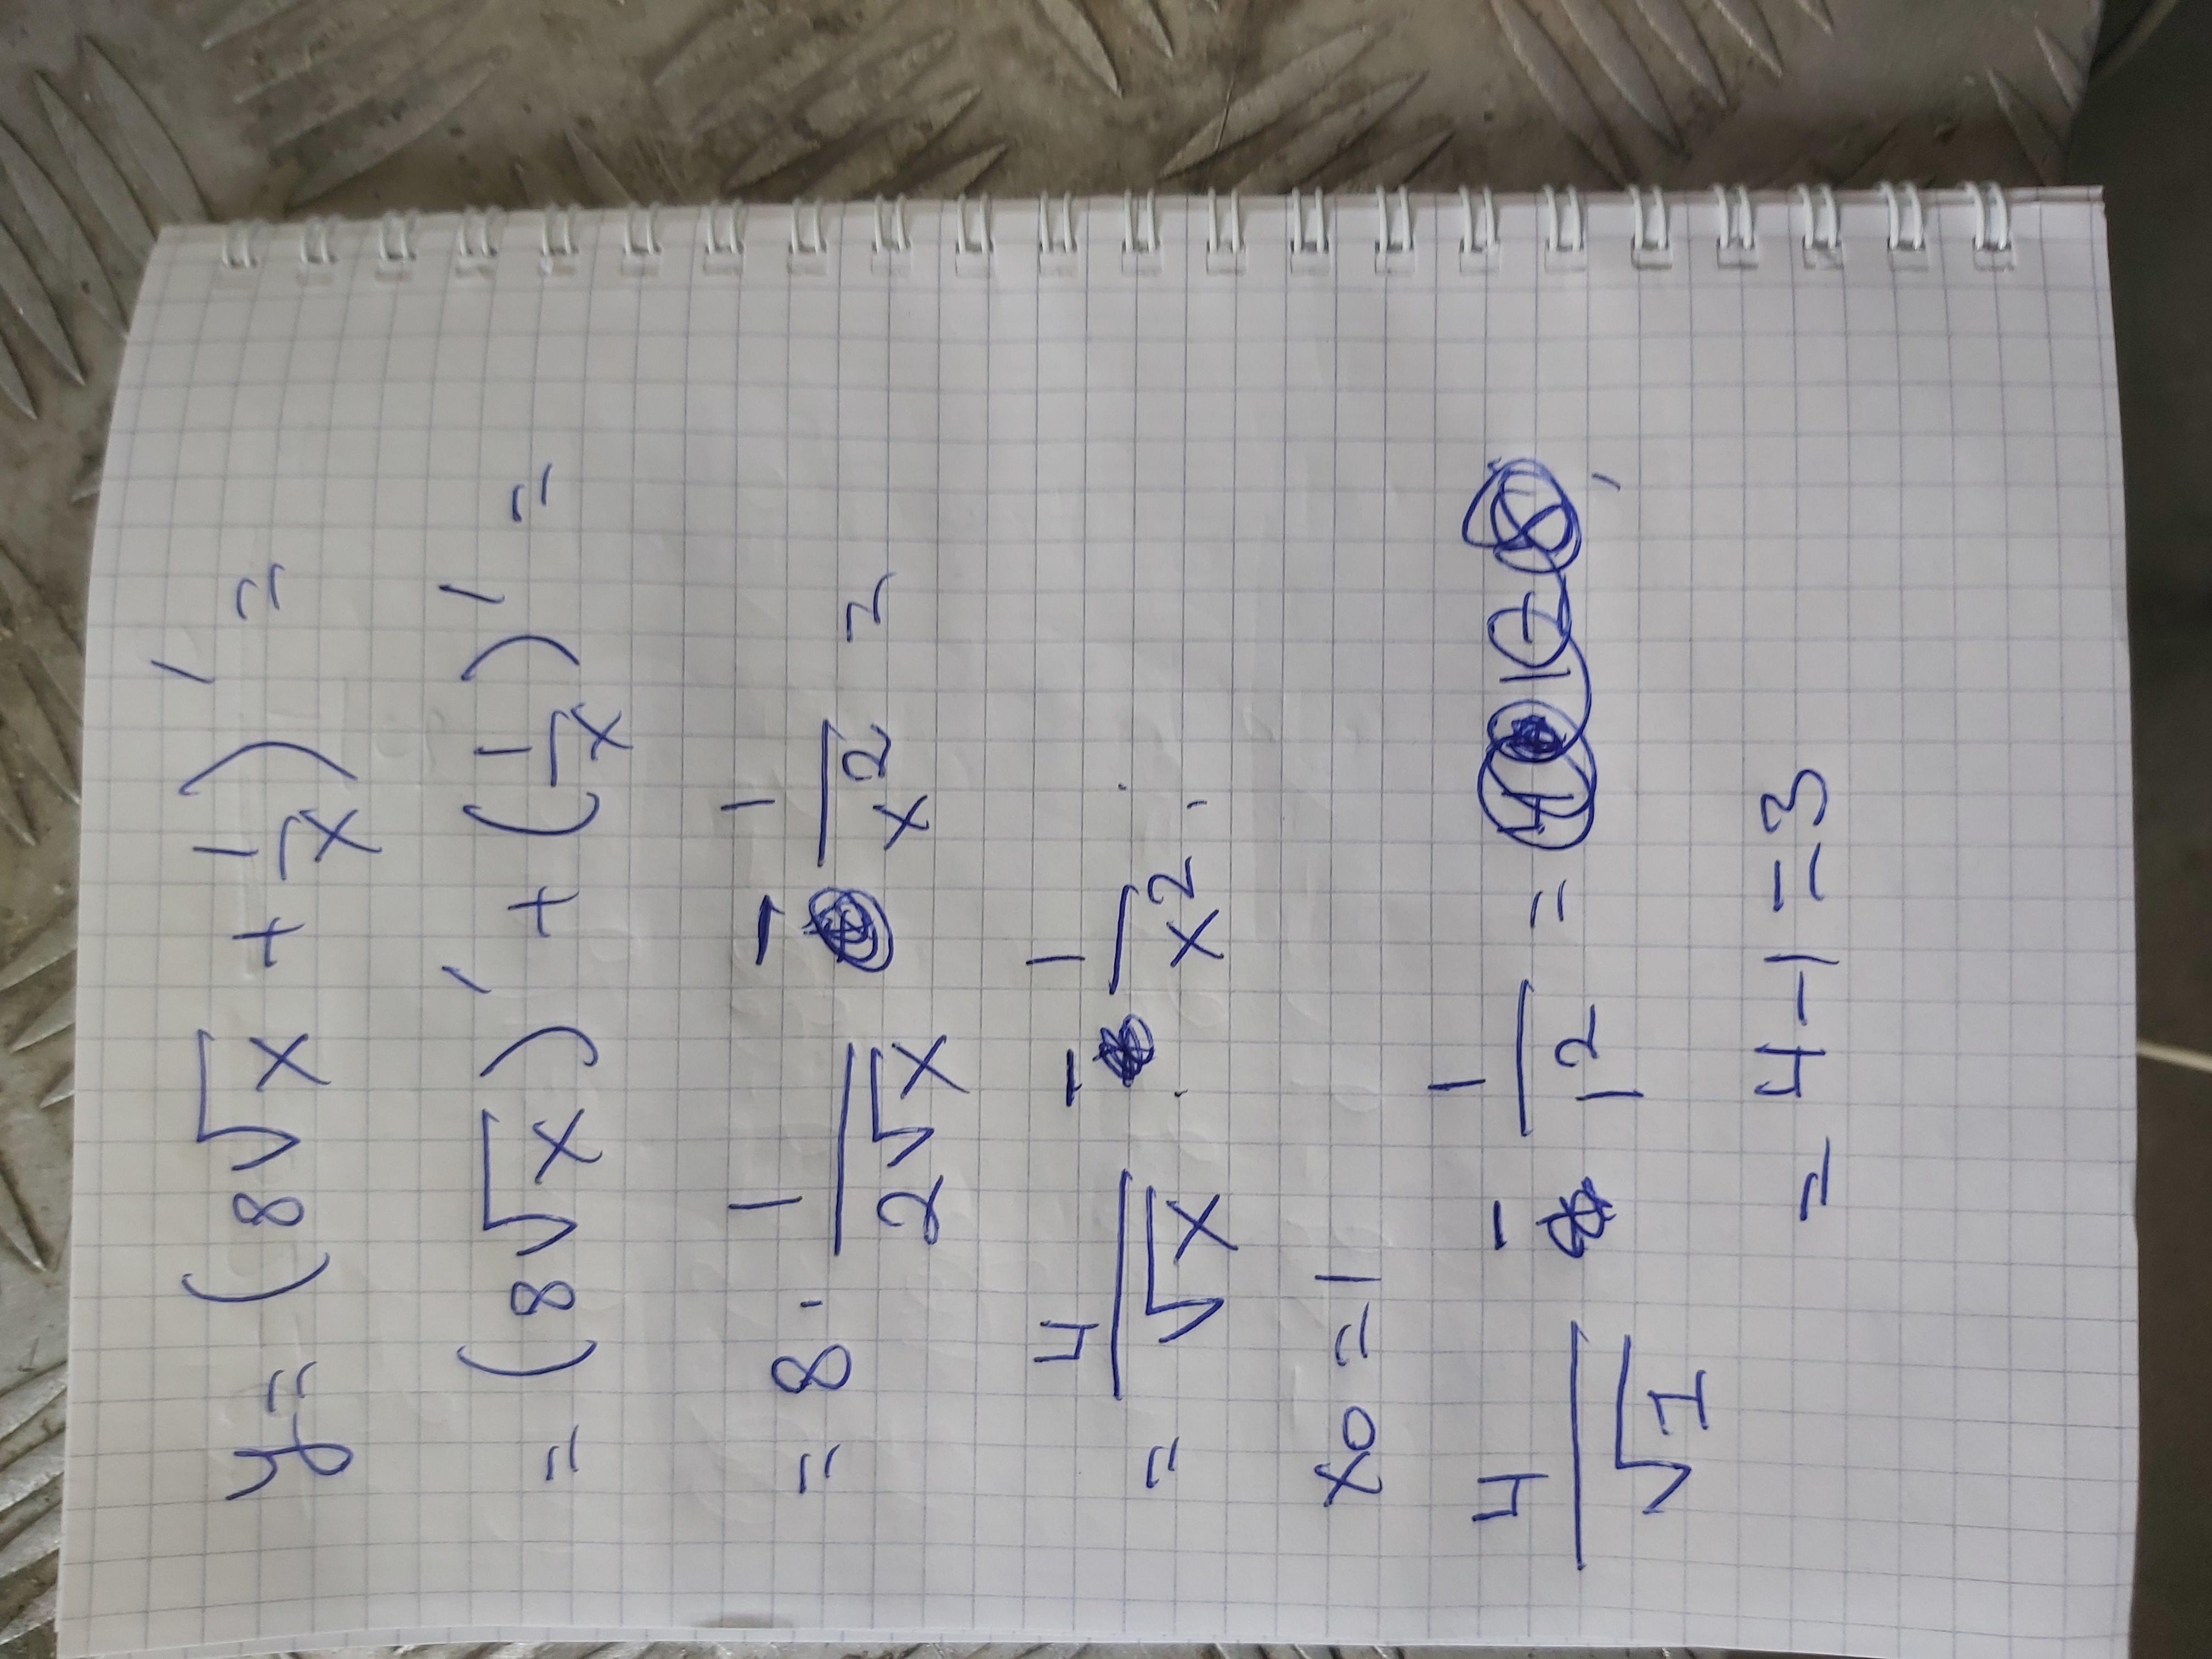 y = (8√x + 1/x)' =
= (8√x)' + (1/x)' =
= 8 · 1/2√x - 1/x² =
= 4/√x - 1/x².
x0 = 1
4/√1 - 1/1² =
= 4 - 1 = 3